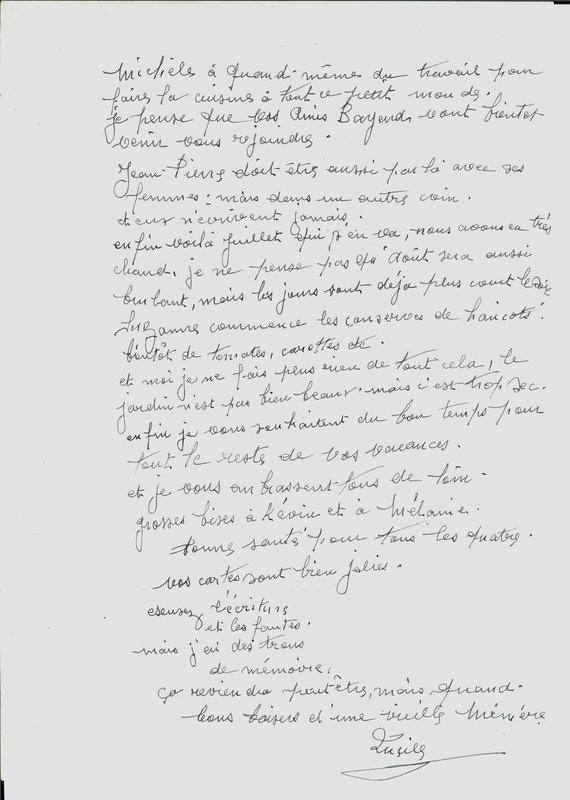 Michèle à quand-mêmes du travail pour
faire la cuisine à tout ce petit monde.
je pense que vos Amis vont bientot
venir vous rejoindre.
Jean-Pierre doit-être aussi par là avec ses
femmes: mais dans un autre coin.
et eux n'écrivent jamais.
enfin voilà Juillet qui s'en va, nous avons eu très
chaud. je ne pense pas qu'Août sera aussi
brulant, mais les jours sont déjà plus court le soir
Suzanne commence les conserves de haricots!
bientôt de tomates, carottes etc.
et moi je ne fais plus rien de tout cela, le
jardin n'est pas bien beaux. mais c'est trop sec.
enfin je vous souhaitent du bon temps pour
tout le reste de vos vacances.
et je vous embrassent tous de loin.
grosses bises à Kévin et à Mélanie.
bonne santé pour tous les quatre.
vos cartes sont bien jolies.
excusez l'écriture
et les fautes.
mais j'ai des trous
de mémoire.
ça reviendra peut-être, mais quand.
bons baisers d'une vieille Mémère
Lucile